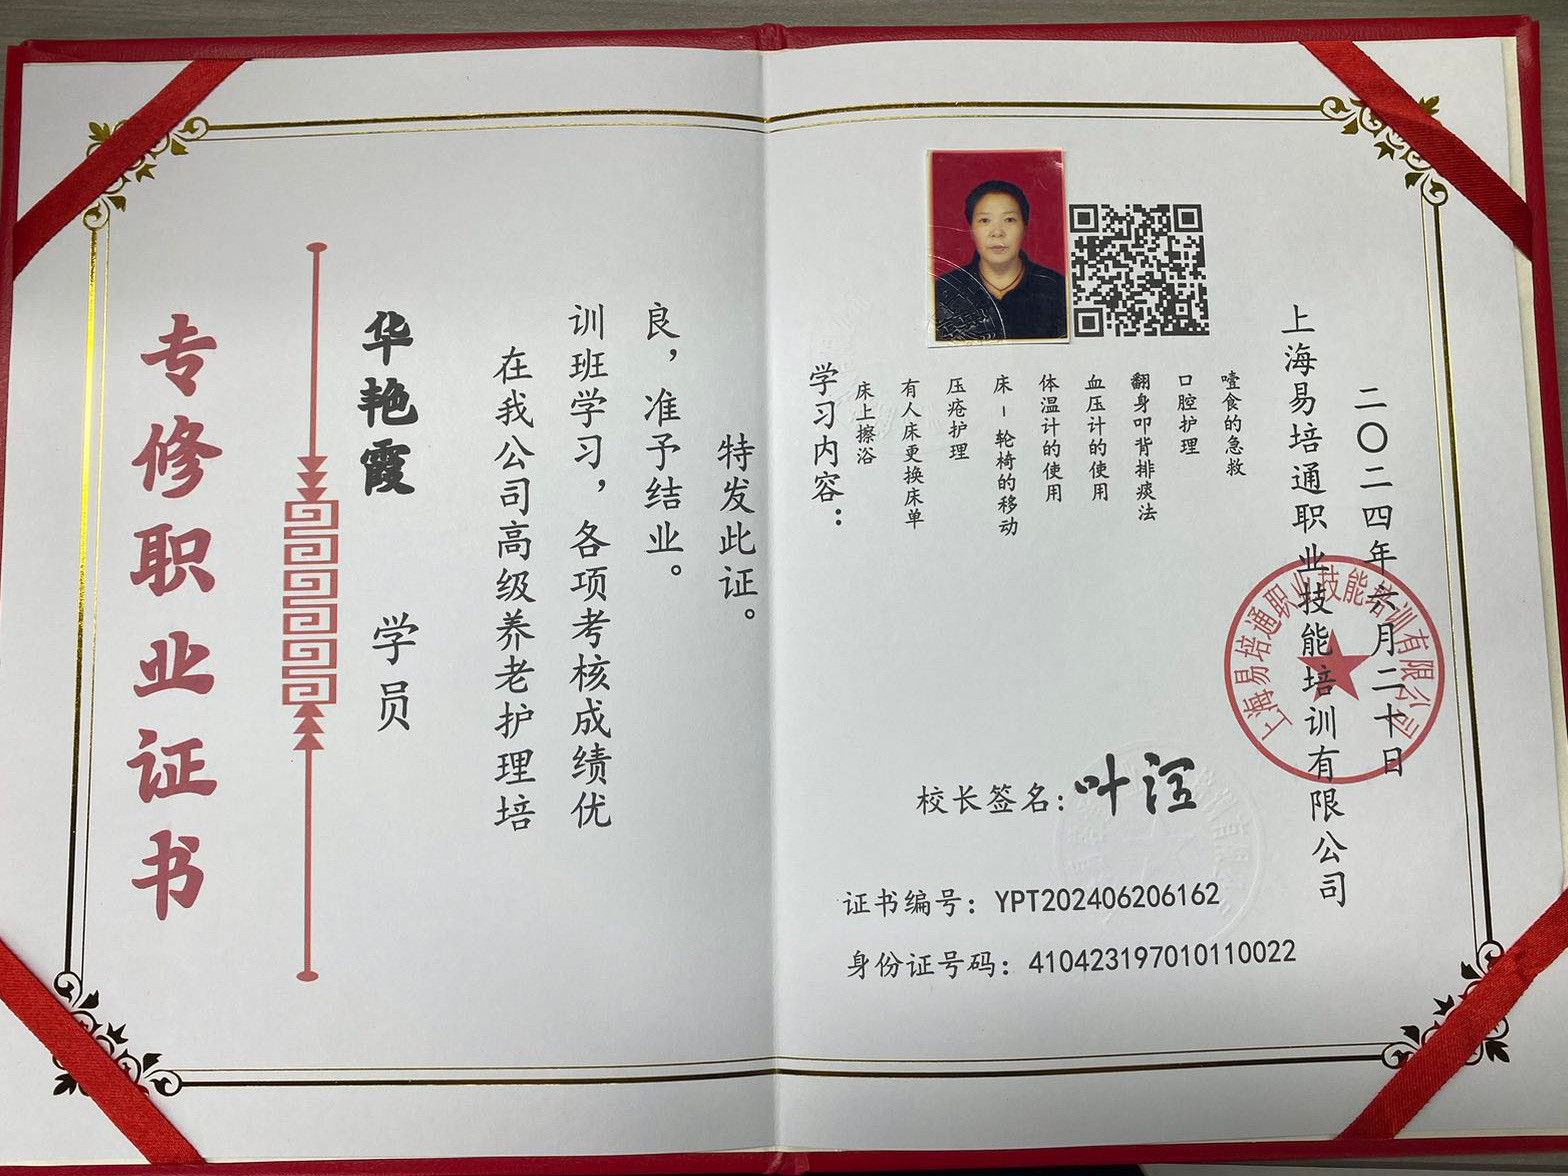 专修职业证书
华艳霞 学员
在我公司高级养老护理培
训班学习，各项考核成绩优
良，准予结业。
特发此证。
学习内容：
床上擦浴
有人床更换床单
压疮护理
床－轮椅的移动
体温计的使用
血压计的使用
翻身叩背排痰法
口腔护理
噎食的急救
上海易培通职业技能培训有限公司
二〇二四年六月二十日
上海易培通职业技能培训有限公司
校长签名：
证书编号：YPT202406206162
身份证号码：410423197010110022